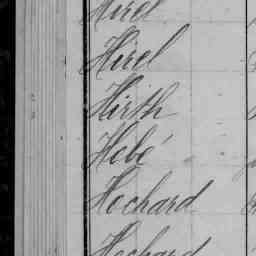 Hirel
Hirel
Hirth
Hébé
Hochard
Hochard